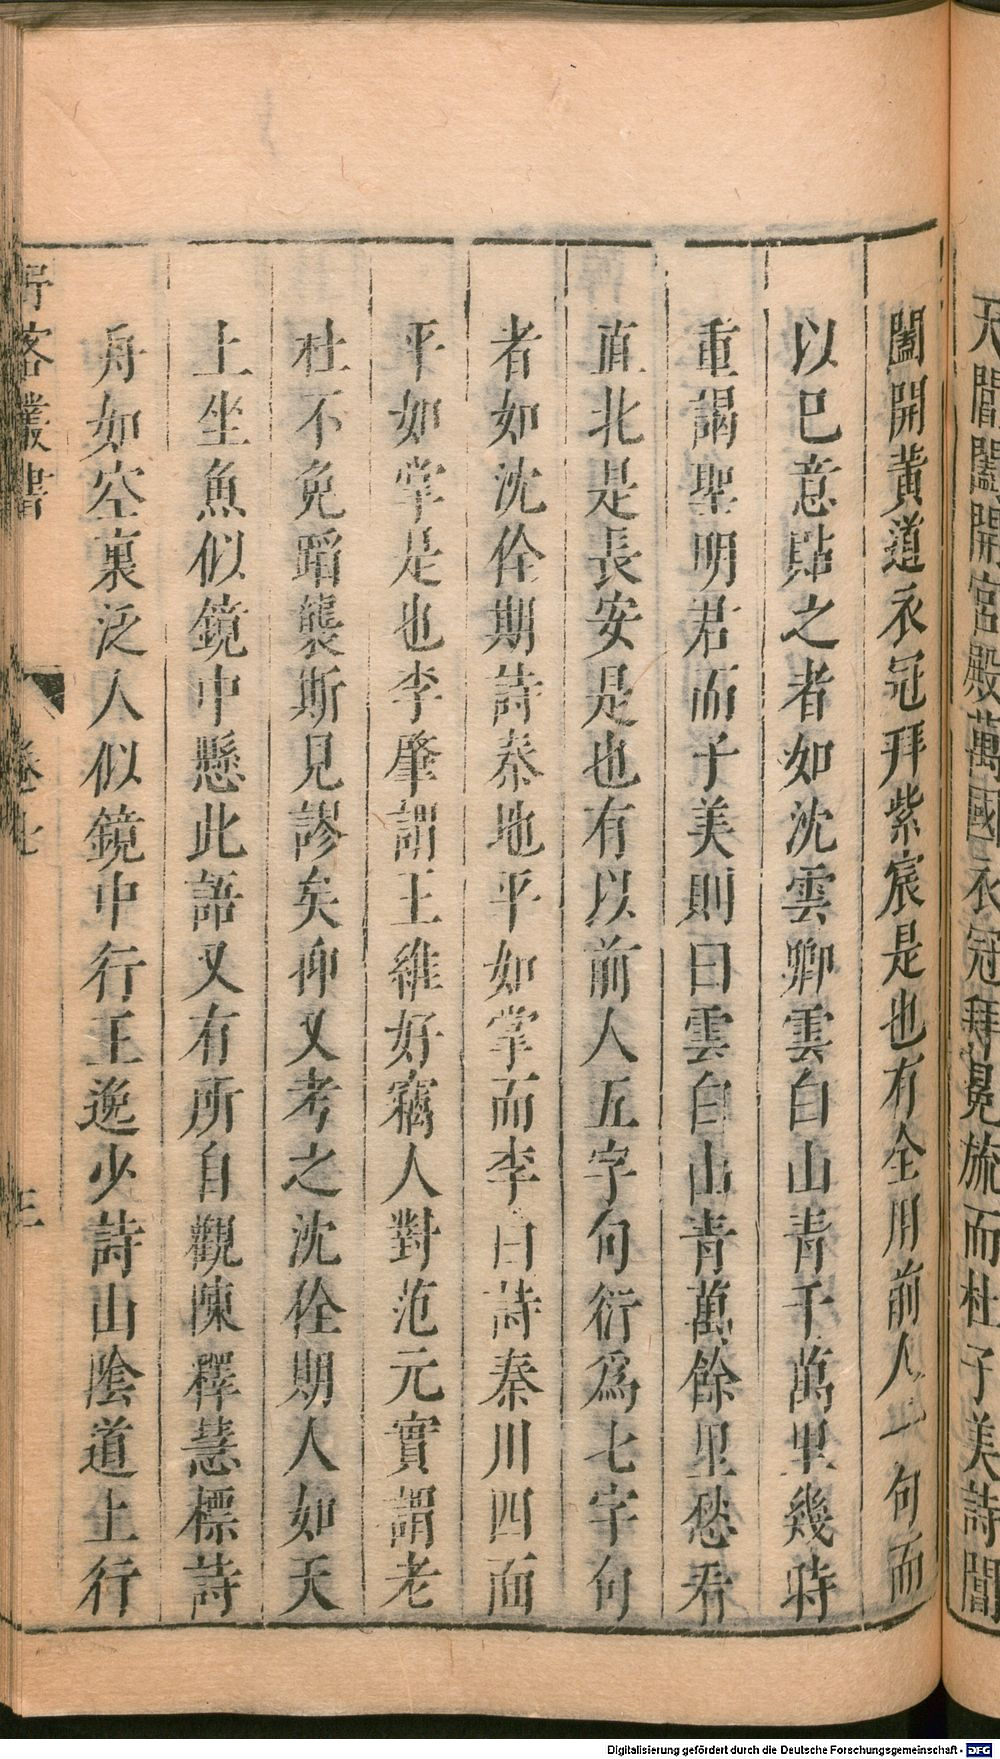 天閶闔開宮殿萬國衣冠拜冕旒而杜子美詩閶
闔開黃道衣冠拜紫宸是也有全用前人一句而
以巳意貼之者如沈雲卿雲白山青千萬里幾時
重謁聖明君而子美則曰雲白山青萬餘里愁看
直北是長安是也有以前人五字句衍爲七字句
者如沈佺期詩秦地平如掌而李白詩秦川四面
平如掌是也李肇謂王維好竊人對范元實謂老
杜不免蹈襲斯見謬矣仰又考之沈佺期人如天
上坐魚似鏡中懸此語又有所自觀陳釋慧標詩
舟如空裏泛人似鏡中行王逸少詩山陰道上行
野客叢書
卷七
Digitalisierung gefördert durch die Deutsche Forschungsgemeinschaft - DFG